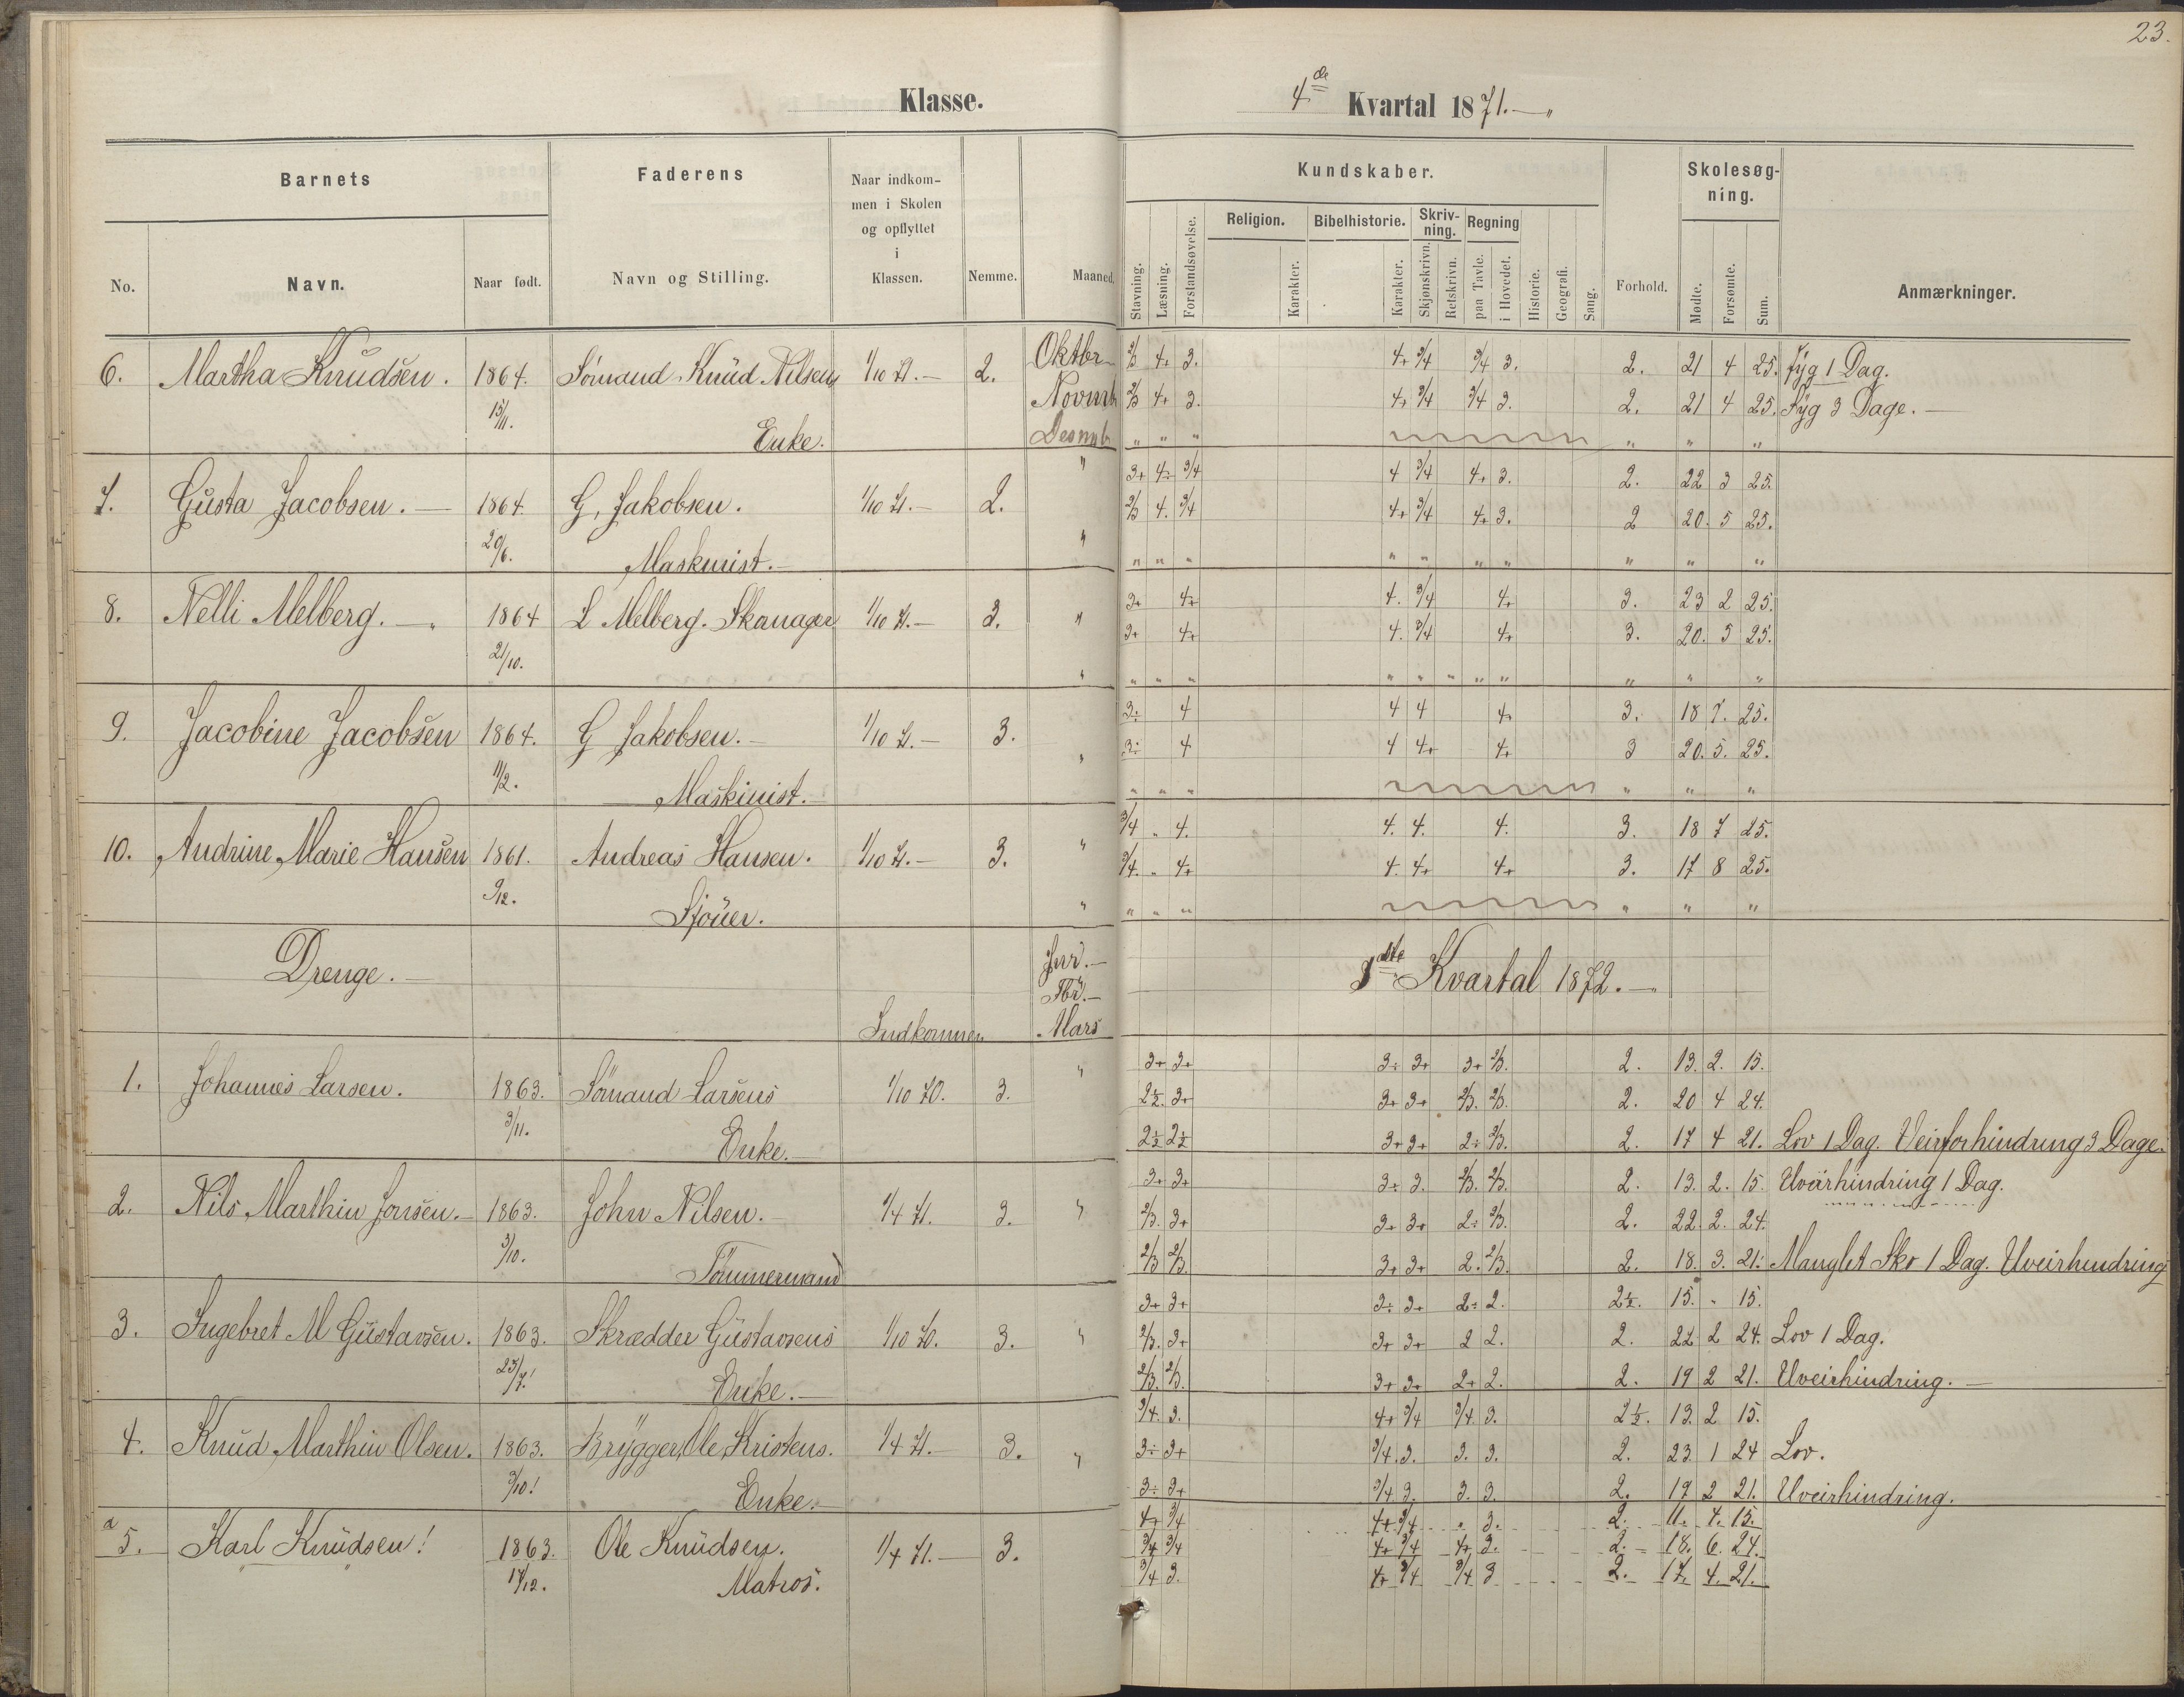 23.
Klasse.
4de Kvartal 1871.
Barnets
Faderens
Naar indkom-
men i Skolen
og opflyttet
i
Klassen.
Kundskaber.
Skolesøg-
ning.
No.
Navn.
Naar født.
Navn og Stilling.
Nemme.
Maaned.
Stavning.
Læsning.
Forstandsøvelse.
Religion.
Karakter.
Bibelhistorie.
Karakter.
Skriv-
ning.
Skjønskrivn.
Retskrivn.
Regning
paa Tavle.
i Hovedet.
Historie.
Geografi.
Sang.
Forhold.
Mødte.
Forsømte.
Sum.
Anmærkninger.
6. Martha Knudsen. 1864. Sömand Knud Nilsens 1/10 71.— 2. Oktbr 2/3 4+ 3. 4+ 3/4 3/4 3. 2. 21 4 25. Syg 1 Dag.
15/11. Novmb 2/3 4+ 3. 4+ 3/4 3/4 3. 2. 21 4 25. Syg 3 Dage.—
Enke. Desmb " " " " " "
7. Gusta Jacobsen.— 1864. G. Jakobsen. 1/10 71.— 2. " 3+ 4÷ 3/4 4 3/4 4+ 3. 2. 22 3 25.
20/6. " 2/3 4. 3/4 4+ 3/4 4+ 3. 2 20. 5 25.
Maskinist.— " " " " " " " " " "
8. Nelli Melberg.— 1864 L Melberg. Skomager 1/10 71.— 3. " 3+ 4+ 4. 3/4 4+ 3. 23 2 25.
21/10. 3+ 4+ 4. 3/4 4+ 3. 20. 5 25.
" " " " " " " " " " " "
9. Jacobine Jacobsen 1864. G Jakobsen.— 1/10 71.— 3. " 3÷ 4 4 4 4+ 3. 18 7. 25.
11/2. " 3÷ 4 4 4+ 4+ 3 20. 5. 25.
Maskinist.— " " " " " "
10. Andrine Marie Hansen 1861. Andreas Hansen. 1/10 71.— 3. " 3/4 " 4. 4. 4. 4. 3. 18 7 25.
9/12. 3/4. " 4+ 4. 4+ 4+ 3. 17 8 25.
Sjouer. " " " " " " "
Drenge.— Jnr.— 1ste Kvartal 1872.—
Fbr.—
Indkommen Mars
1. Johannes Larsen. 1863. Sömand Larsens 1/10 70. 3. " 3+ 3+ 3÷ 3+ 3+ 2/3. 2. 13. 2. 15.
3/11. 2½. 3+ 3+ 3+ 2/3. 2/3. 2. 20 4 24.
Enke.— 2½ 2½ 3+ 3+ 2÷ 2/3. 2. 17 4 21. Lov 1 Dag. Veirforhindring 3 Dage.
2. Nils Marthin Jonsen.— 1863. John Nilsen.— 1/4 71. 3. " 3+ 3+ 3÷ 3. 2/3. 2/3. 2. 13. 2. 15. Uveirhindring 1 Dag.
3/10. 2/3. 3+ 3+ 3+ 2÷ 2/3. 2. 22. 2. 24.
Tömmermand 2/3 2/3. 3+ 3+ 2. 2/3. 2. 18. 3. 21. Manglet Sko 1 Dag. Uveirhindring
3. Ingebret M Gustavsen. 1863. Skrædder Gustavsens 1/10 70. 3. " 3+ 3+ 3÷ 3+ 2÷ 2. 2½. 15. " 15.
25/7. 2/3. 3+ 3+ 3+ 2 2. 2. 22. 2 24. Lov 1 Dag.
Enke.— 2/3. 2/3. 3+ 3+ 2+ 2. 2. 19 2 21. Uveirhindring.—
4. Knud Marthin Olsen. 1863. Brygger Ole Kristens. 1/4 71. 3. " 3/4. 3. 4+ 3/4 3/4. 3. 2½. 13. 2 15.
3/10. 3÷ 3+ 3/4. 3. 3. 3. 2. 23. 1 24 Lov.
Enke.— 3÷ 3+ 3/4. 3. 3. 3. 2. 19 2 21. Uveirhindring.
a 5. Karl Knudsen! 1863. Ole Knudsen. 1/4 71.— 3. 4+ 3/4 4+ 3/4 " 3. 2. 11. 4. 15.
17/12. 3/4 3/4 4+ 3/4 4+ 3. 2. 18. 6. 24.
Matros. 3/4 3. 4+ 3/4 3/4 3 2. 17. 4. 21.